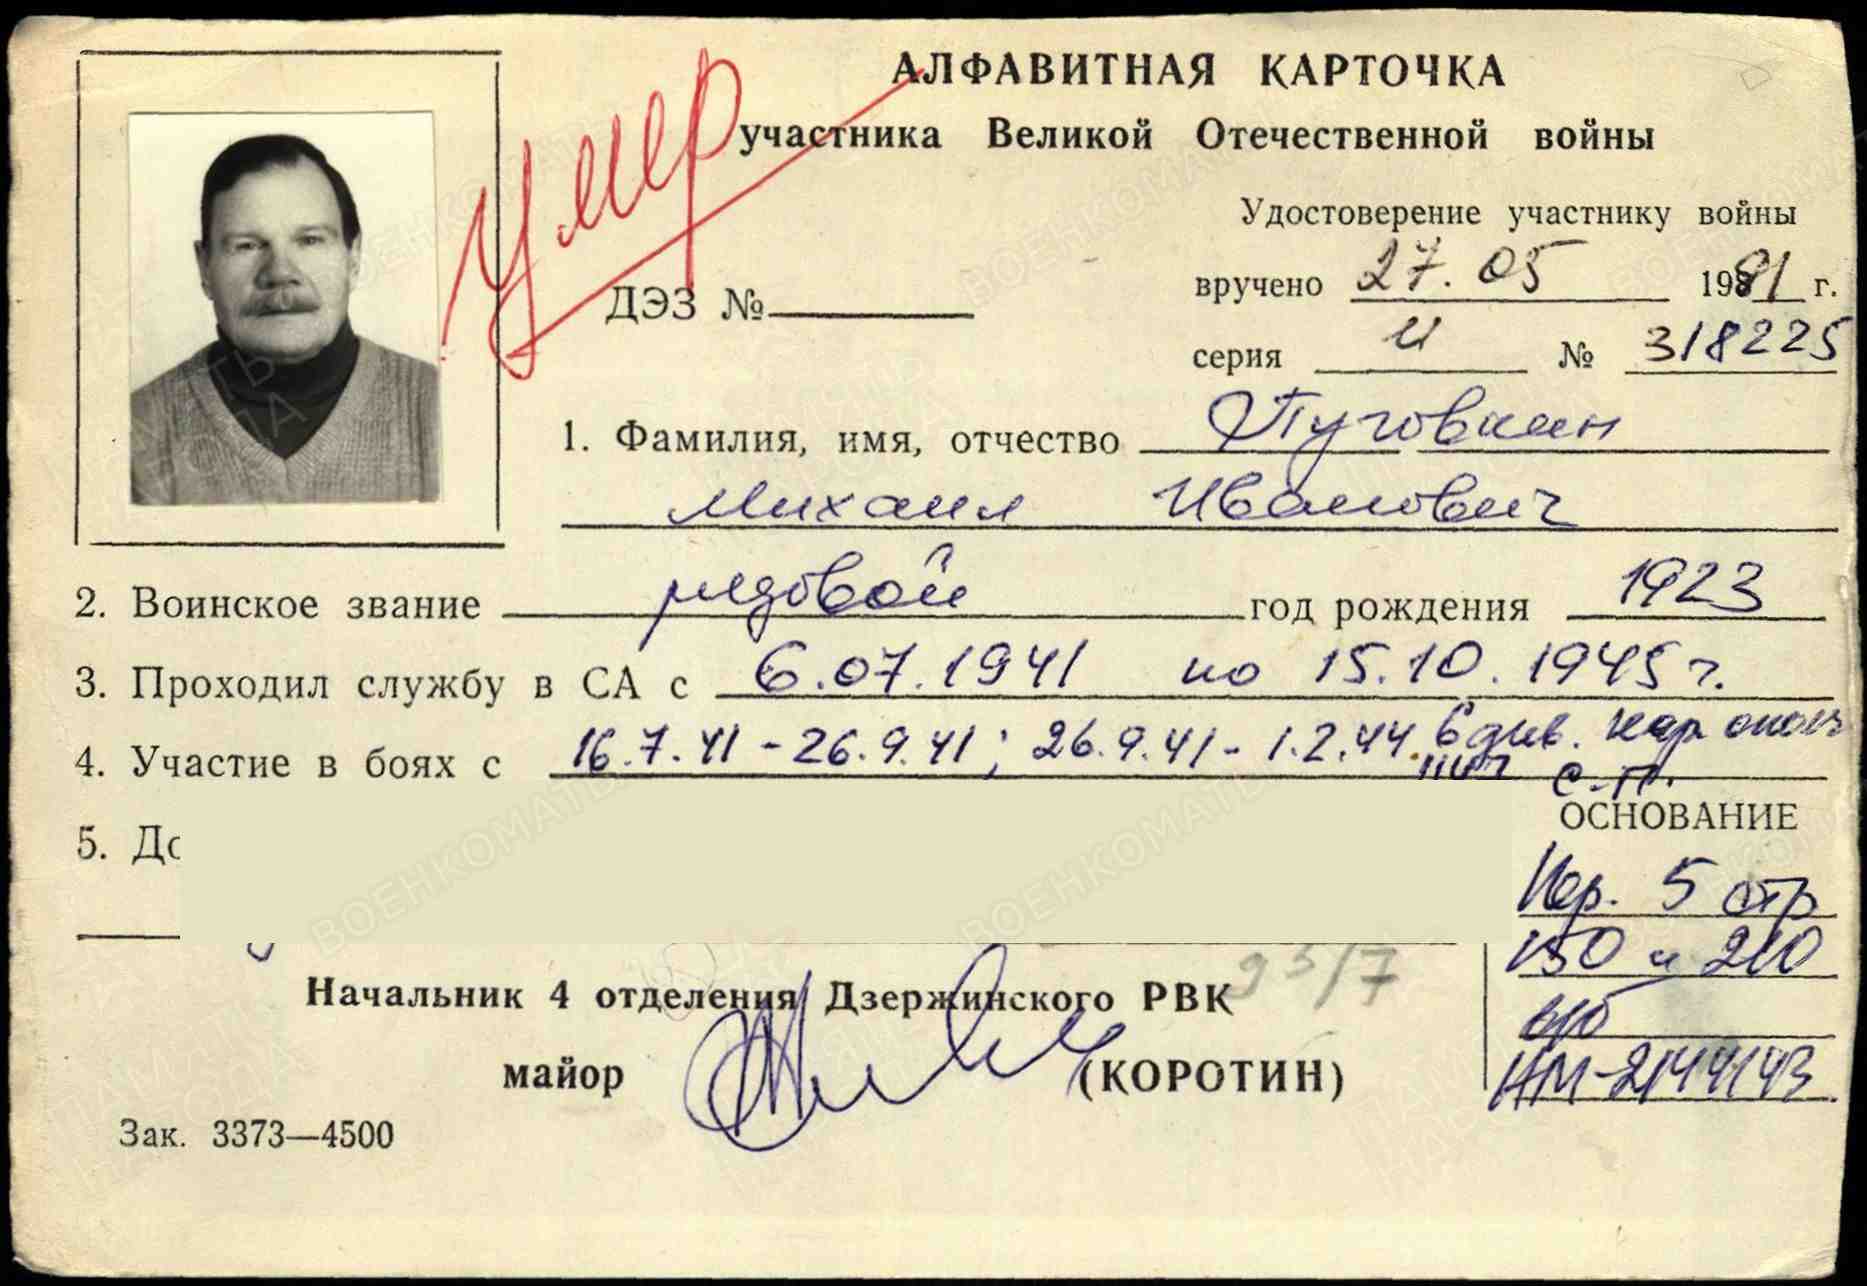 АЛФАВИТНАЯ КАРТОЧКА
участника Великой Отечественной войны
Умер
Удостоверение участнику войны
вручено 27.05 1981 г.
ДЭЗ №
серия И № 318225
1. Фамилия, имя, отчество Пуговкин
Михаил Иванович
2. Воинское звание рядовой год рождения 1923
3. Проходил службу в СА с 6.07.1941 по 15.10.1945 г.
4. Участие в боях с 16.7.41 - 26.9.41; 26.9.41 - 1.2.44. 6 див. нар ополч
с.п.
5. До
ОСНОВАНИЕ
5 стр
150 и 210
93/7
Начальник 4 отделения Дзержинского РВК
майор (КОРОТИН)
НМ-2144143
Зак. 3373—4500
ПАМЯТЬ НАРОДА
ВОЕНКОМАТЫ